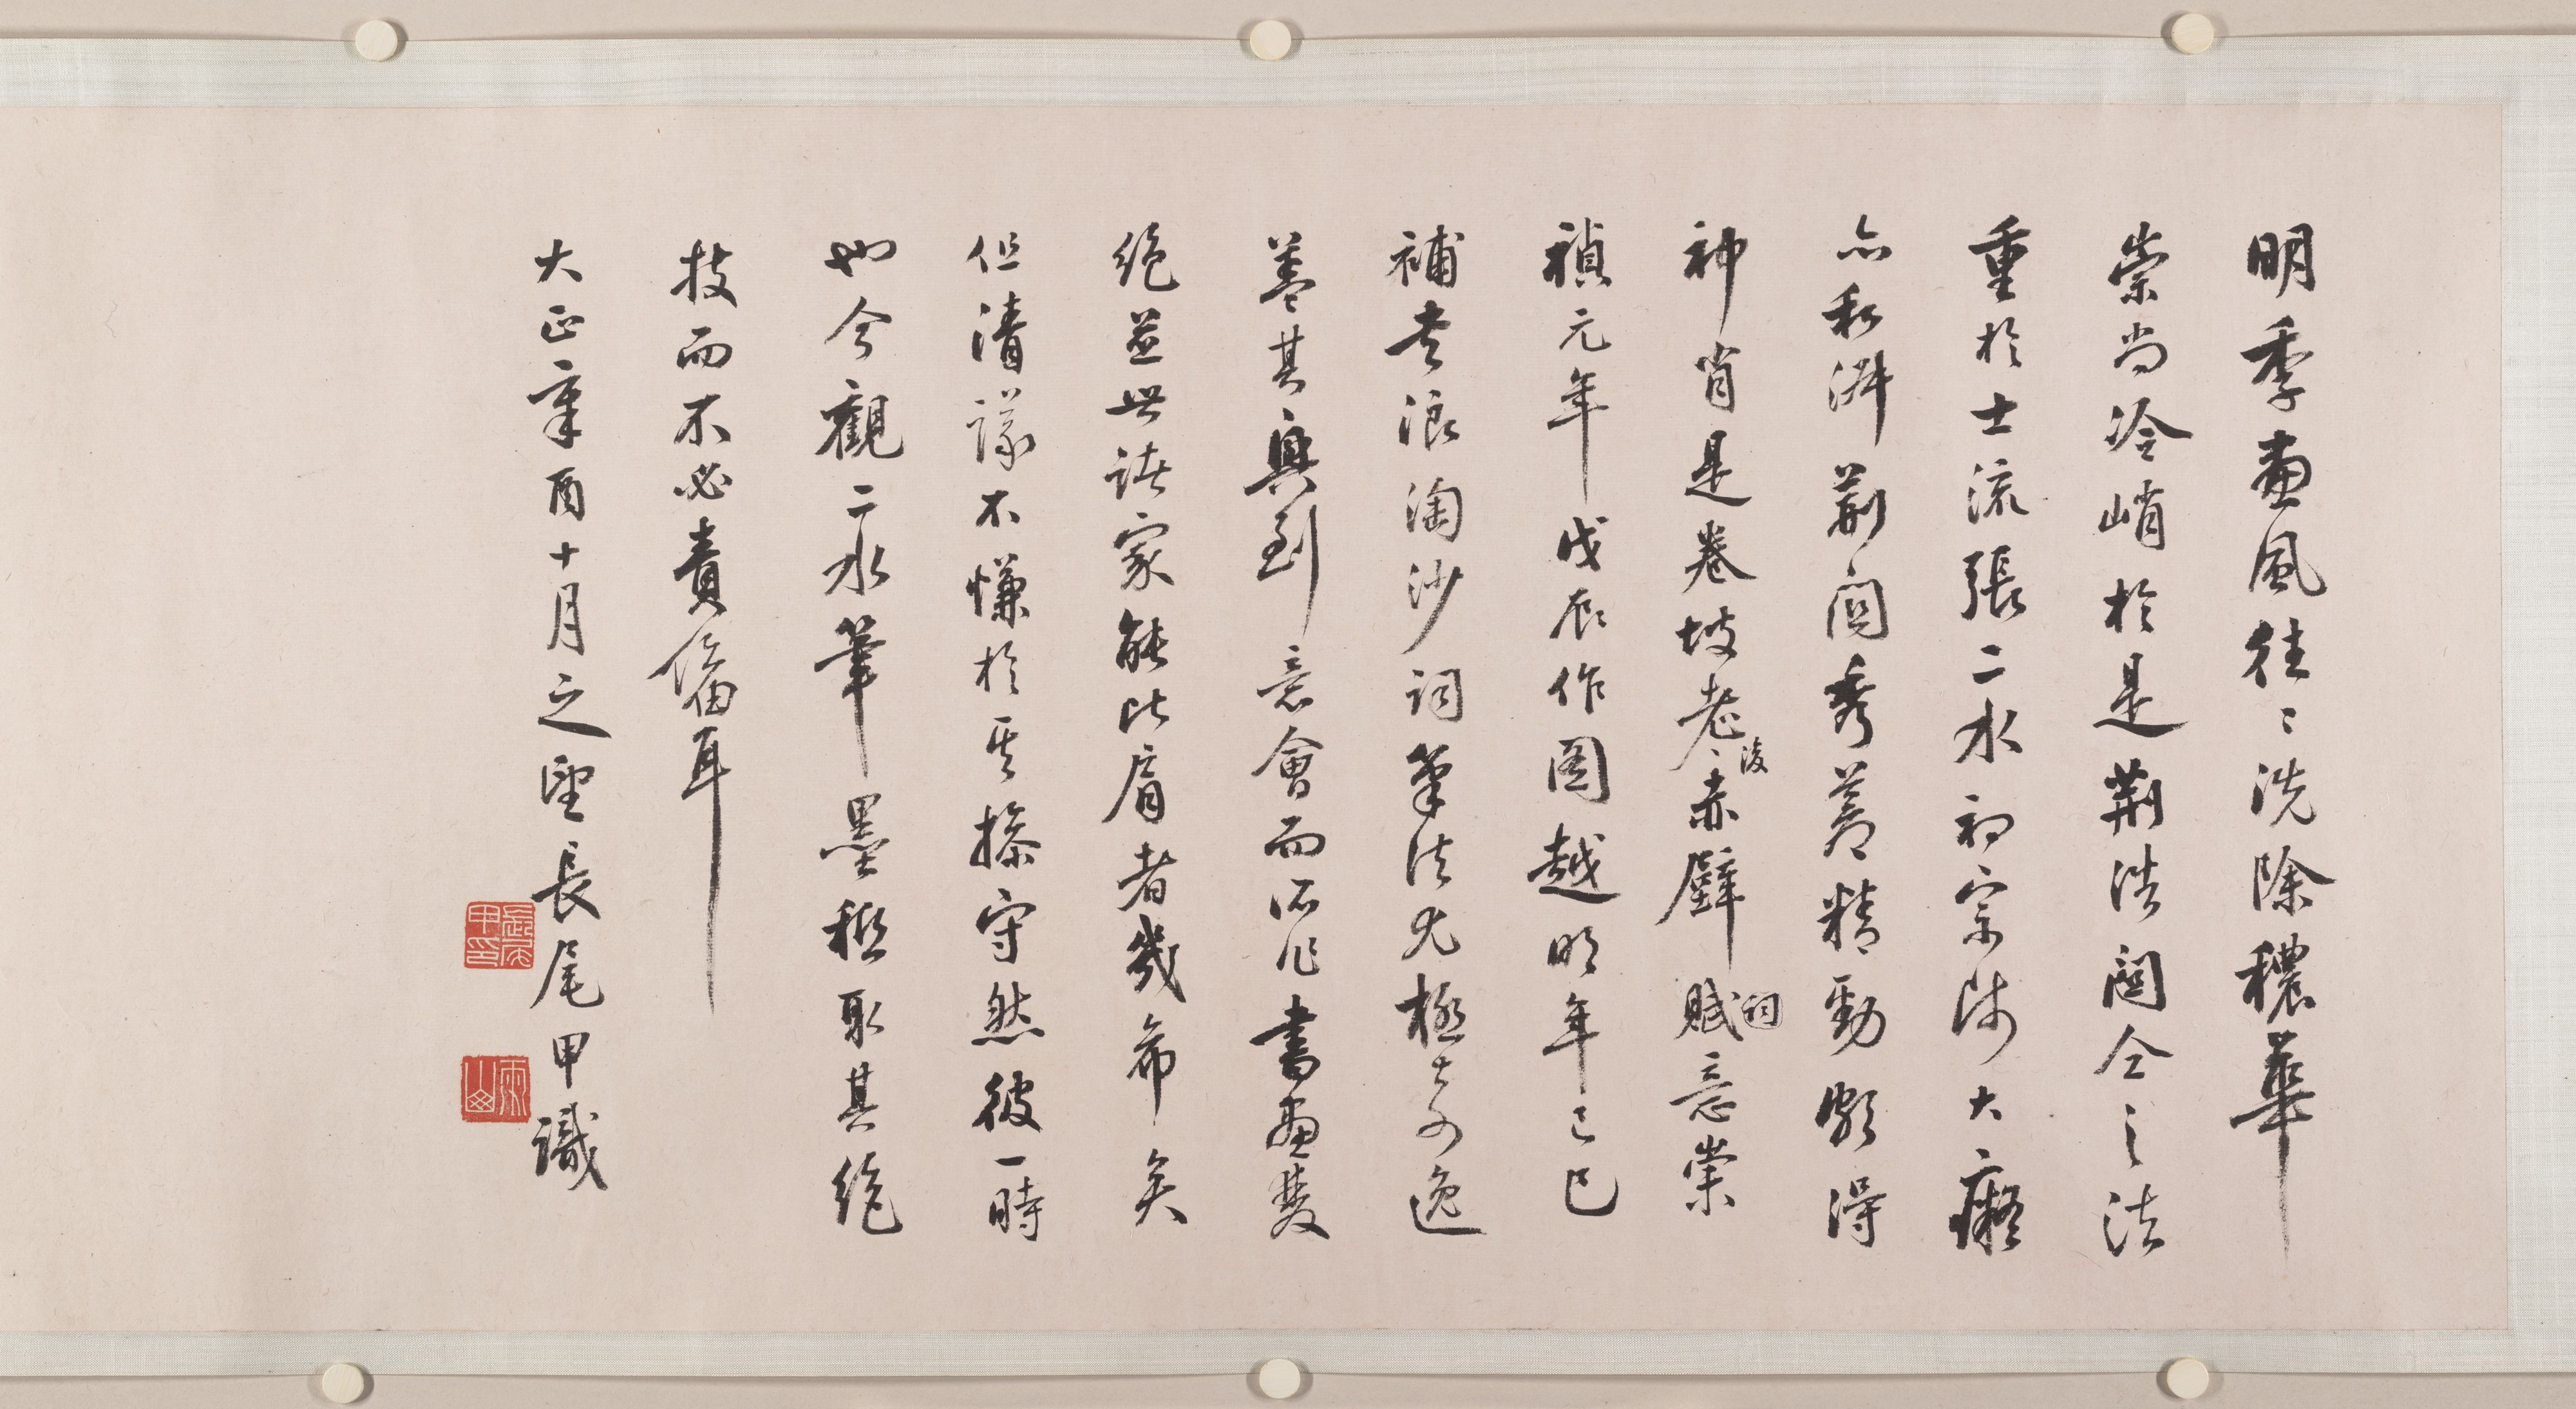 明季畫風往〻洗除穠華
崇尚冷峭於是荊浩關仝之法
重於士流張二水初宗陳大癡
亦私淑荊関秀蒼精勁頗得
神肖是卷坡老後赤壁賦詞意崇
禎元年戊辰作圖越明年己巳
補書浪淘沙詞筆法尤極奇逸
蓋其興到意會而所作書畫雙
絕並世諸家能比肩者幾希矣
但清議不慊於其操守然彼一時
也今觀二水筆墨秖取其絕
技而不必責備耳
大正辛酉十月之望長尾甲識
長尾甲印
雨山